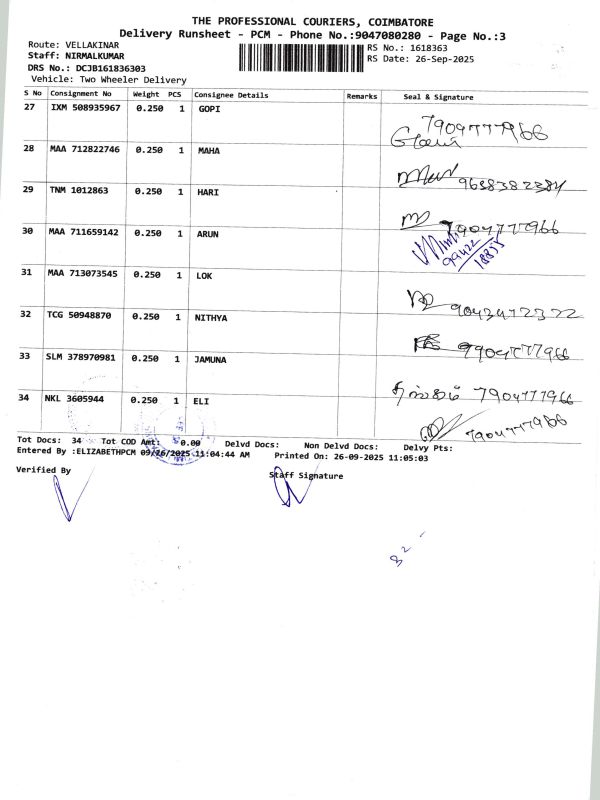 THE PROFESSIONAL COURIERS, COIMBATORE
Delivery Runsheet - PCM - Phone No.:9047080280 - Page No.:3
Route: VELLAKINAR
RS No.: 1618363
Staff: NIRMALKUMAR
RS Date: 26-Sep-2025
DRS No.: DCJB161836303
Vehicle: Two Wheeler Delivery
S No Consignment No Weight PCS Consignee Details Remarks Seal & Signature
27 IXM 508935967 0.250 1 GOPI
7909777966
28 MAA 712822746 0.250 1 MAHA
9658382384
29 TNM 1012863 0.250 1 HARI
7904777966
30 MAA 711659142 0.250 1 ARUN
99422
18855
31 MAA 713073545 0.250 1 LOK
9043472322
32 TCG 50948870 0.250 1 NITHYA
7904777966
33 SLM 378970981 0.250 1 JAMUNA
7904777966
34 NKL 3605944 0.250 1 ELI
7904777966
Tot Docs: 34 Tot COD Amt: 0.00 Delvd Docs: Non Delvd Docs: Delvy Pts:
Entered By :ELIZABETHPCM 09/26/2025 11:04:44 AM Printed On: 26-09-2025 11:05:03
Verified By
Staff Signature
32